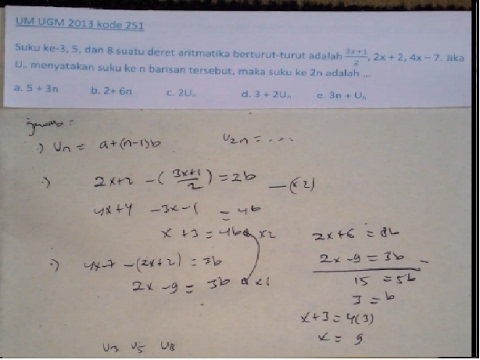 UM UGM 2013 kode 251
Suku ke-3, 5, dan 8 suatu deret aritmatika berturut-turut adalah (3x+1)/2, 2x + 2, 4x − 7. Jika
Uₙ menyatakan suku ke n barisan tersebut, maka suku ke 2n adalah ...
a. 5 + 3n b. 2+ 6n c. 2Uₙ d. 3 + 2Uₙ e. 3n + Uₙ
:) Un = a+(n-1)b U2n = ...
:) 2x+2 - (3x+1)/2 = 2b —(x2)
4x+4 -3x-1 = 4b
x + 3 = 4b x2
:) 4x-7 -(2x+2) = 3b
2x - 9 = 3b x1
2x+6 = 8b
2x -9 = 3b −
15 = 5b
3 = b
x+3 = 4(3)
x = 9
U3 U5 U8